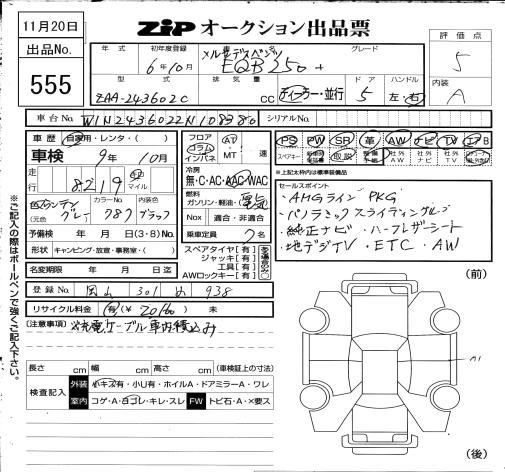 11月20日
ZiP オークション出品票
出品No.
555
評価点
5
内装
A
年式 初年度登録 車名 グレード
6年10月 メルセデスベンツ EQB 250+
型式 排気量 ドア ハンドル
ZAA-243602C cc ディーラー・並行 5 左・右
車台No. W1N2436022N108380 シリアルNo.
車歴 自家用・レンタ・( )
車検 9年 10月
走行 8219 km マイル
色 マウンテングレイ (元色 ) カラーNo. 787 内装色 ブラック
予備検 年 月 日(3・8)No.
形状 キャンピング・放宣・事務室・( )
名変期限 年 月 日迄
フロア コラム インパネ AT・MT 速
冷房
無・C・AC・AAC・WAC
燃料
ガソリン・軽油・電気
Nox 適合・非適合
乗車定員 名
スペアタイヤ[有]
ジャッキ[有]
工具[有]
AWロックキー[有]
PS PW SR 革 AW ナビ TV エアB
スペアキー 取説 社外AW 社外ナビ 社外TV
※上記太枠内は標準装備品
セールスポイント
・AMGライン PKG
・パノラミックスライディングルーフ
・純正ナビ・ハーフレザーシート
・地デジTV・ETC・AW
登録No. 岡山 301 938
リサイクル料金 (有)(¥ ) 未
(注意事項) ※充電ケーブル車内積込み
長さ cm 幅 cm 高さ cm (車検証上の寸法)
検査記入
外装 小キズ有・小U有・ホイルA・ドアミラーA・ワレ
室内 コゲ・A・白コレ・キレ・スレ FW トビ石・A・×要ス
※ご記入の際はボールペンで強くご記入下さい。
(前)
A1
(後)